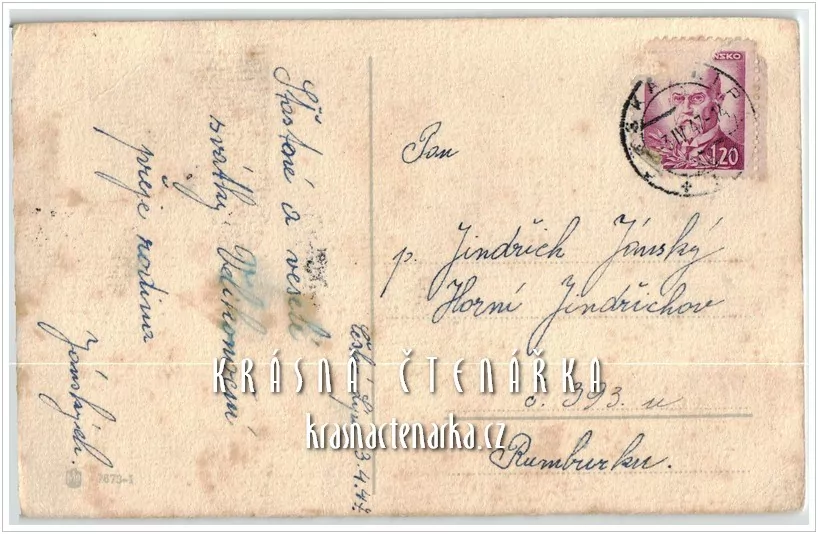 Šťastné a veselé
svátky Velikonoční
přeje rodina
Jánských.
Česká Lípa 3.4.47.
Pan
p. Jindřich Jánský
Horní Jindřichov
č. 393. u
Rumburku.
NSKO
1.20
ČESKÁ LÍP
IV.47
KRÁSNÁ ČTENÁŘKA
krasnactenarka.cz
7673-1